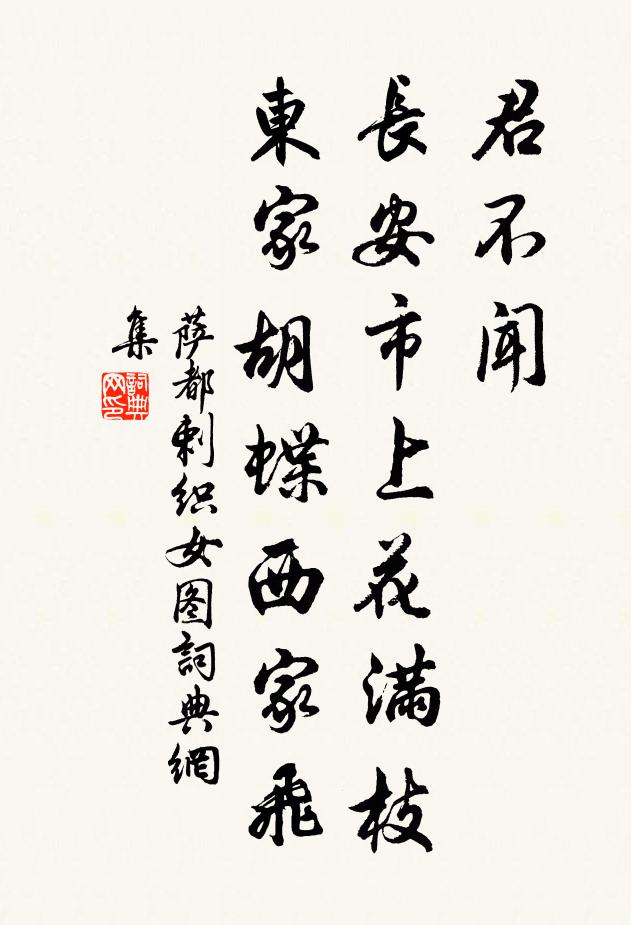 君不闻
長安市上花满枝
東家胡蝶西家飛
萨都剌织女图詞典網
集
詞典
网印